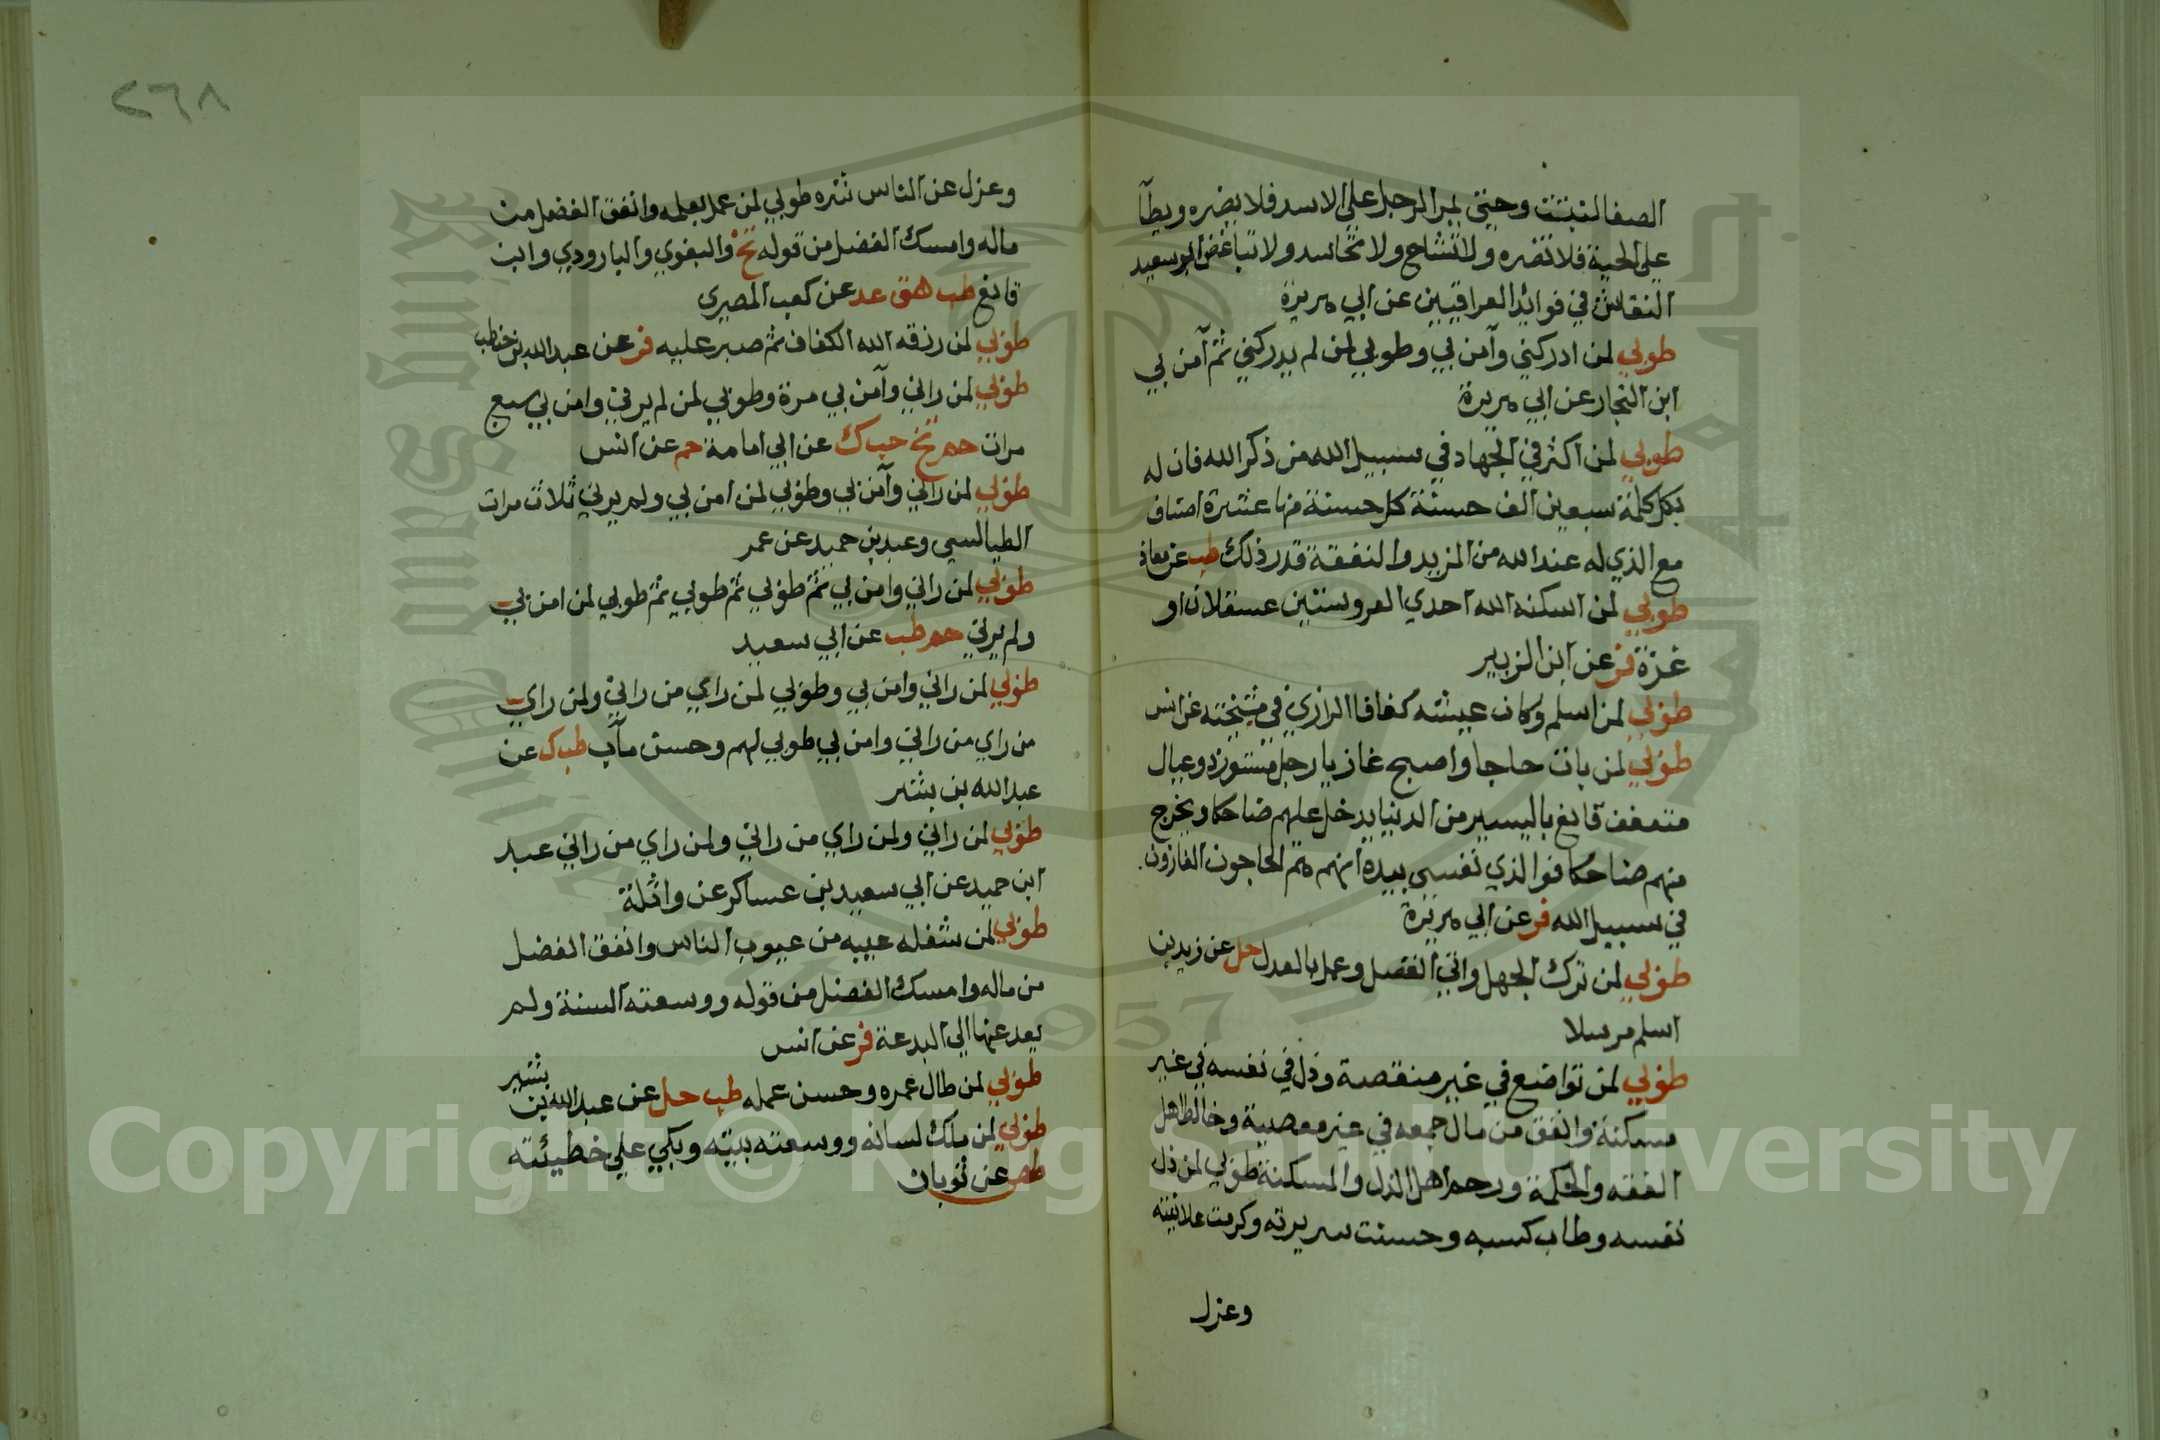 الصفا لنبتت وحتي يمر الرجل علي الاسد فلا يضره ويطأ
علي الحية فلا تضره ولا تشاح ولا تحاسد ولا تباغض ابو سعيد
النقاش في فوائد العراقيين عن ابي هريرة
طوبي لمن ادركني وآمن بي وطوبي لمن لم يدركني ثم آمن بي
ابن النجار عن ابي هريرة
طوبي لمن اكثر في الجهاد في سبيل الله من ذكر الله فان له
بكل كلمة سبعين الف حسنة كل حسنة منها عشرة اضعاف
مع الذي له عند الله من المزيد والنفقة قدر ذلك طب عن معاذ
طوبي لمن اسكنه الله احدي العروستين عسقلان او
غزة فر عن ابن الزبير
طوبي لمن اسلم وكان عيشه كفافا الرازي في مشيخته عن انس
طوبي لمن بات حاجا واصبح غازيا رجل مستور ذو عيال
متعفف قانع باليسير من الدنيا يدخل عليهم ضاحكا ويخرج
منهم ضاحكا فوالذي نفسي بيده انهم هم الحاجون الغازون
في سبيل الله فر عن ابي هريرة
طوبي لمن ترك الجهل واتي الفضل وعمل بالعدل حل عن زيد بن
اسلم مرسلا
طوبي لمن تواضع في غير منقصة وذل في نفسه في غير
مسكنة وانفق من مال جمعه في غير معصية وخالط اهل
الفقه والحكمة ورحم اهل الذل والمسكنة طوبي لمن ذل
نفسه وطاب كسبه وحسنت سريرته وكرمت علانيته
وعزل
٢٦٨
وعزل عن الناس شره طوبي لمن عمل بعلمه وانفق الفضل من
ماله وامسك الفضل من قوله تخ والبغوي والباوردي وابن
قانع طب هق عد عن كعب المصري
طوبي لمن رزقه الله الكفاف ثم صبر عليه فر عن عبد الله بن حنطب
طوبي لمن راني وآمن بي مرة وطوبي لمن لم يرني وامن بي سبع
مرات حم تخ حب ك عن ابي امامة حم عن انس
طوبي لمن راني وآمن بي وطوبي لمن امن بي ولم يرني ثلاث مرات
الطيالسي وعبد بن حميد عن عمر
طوبي لمن راني وامن بي ثم طوبي ثم طوبي ثم طوبي لمن امن بي
ولم يرني حم طب عن ابي سعيد
طوبي لمن راني وامن بي وطوبي لمن راي من راني ولمن راي
من راي من راني وامن بي طوبي لهم وحسن مآب طب ك عن
عبد الله بن بشر
طوبي لمن راني ولمن راي من راني ولمن راي من راني عبد
ابن حميد عن ابي سعيد بن عساكر عن واثلة
طوبي لمن شغله عيبه من عيوب الناس وانفق الفضل
من ماله وامسك الفضل من قوله ووسعته السنة ولم
يعد عنها الي البدعة فر عن انس
طوبي لمن طال عمره وحسن عمله طب حل عن عبد الله بن بشير
طوبي لمن ملك لسانه ووسعته بيته وبكي علي خطيئته
طص عن ثوبان
Copyright © King Saud University
1957